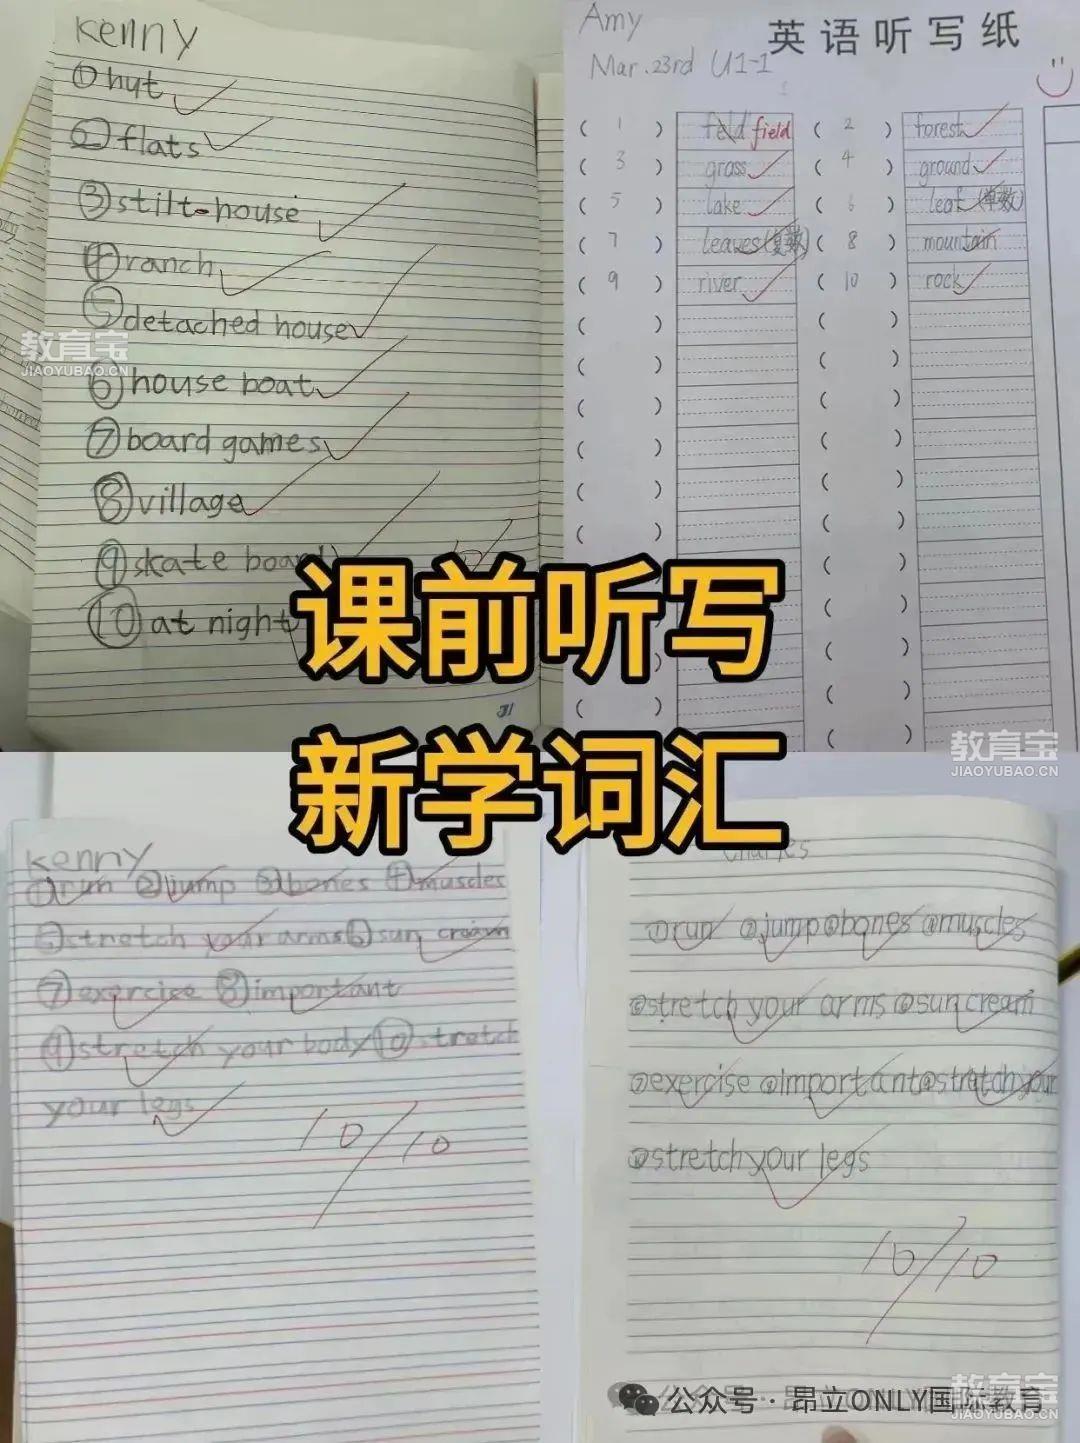 Kenny
①hut
②flats
③stilt-house
④ranch
⑤detached house
⑥house boat
⑦board games
⑧village
⑨skate board
⑩at night
31
Amy
英语听写纸
Mar.23rd U1-1
( 1 ) feld field ( 2 ) forest
( 3 ) grass ( 4 ) ground
( 5 ) lake ( 6 ) leaf (单数)
( 7 ) leaves (复数) ( 8 ) mountain
( 9 ) river ( 10 ) rock
教育宝
JIAOYUBAO.CN
课前听写
新学词汇
教育宝
JIAOYUBAO.CN
Kenny
①run ②jump ③bones ④muscles
⑤stretch your arms ⑥sun cream
⑦exercise ⑧important
⑨stretch your body ⑩stretch
your legs
10/10
Charles
①run ②jump ③bones ④muscles
⑤stretch your arms ⑥sun cream
⑦exercise ⑧important ⑨stretch your
⑩stretch your legs
10/10
公众号 · 昂立ONLY国际教育
教育宝
JIAOYUBAO.CN